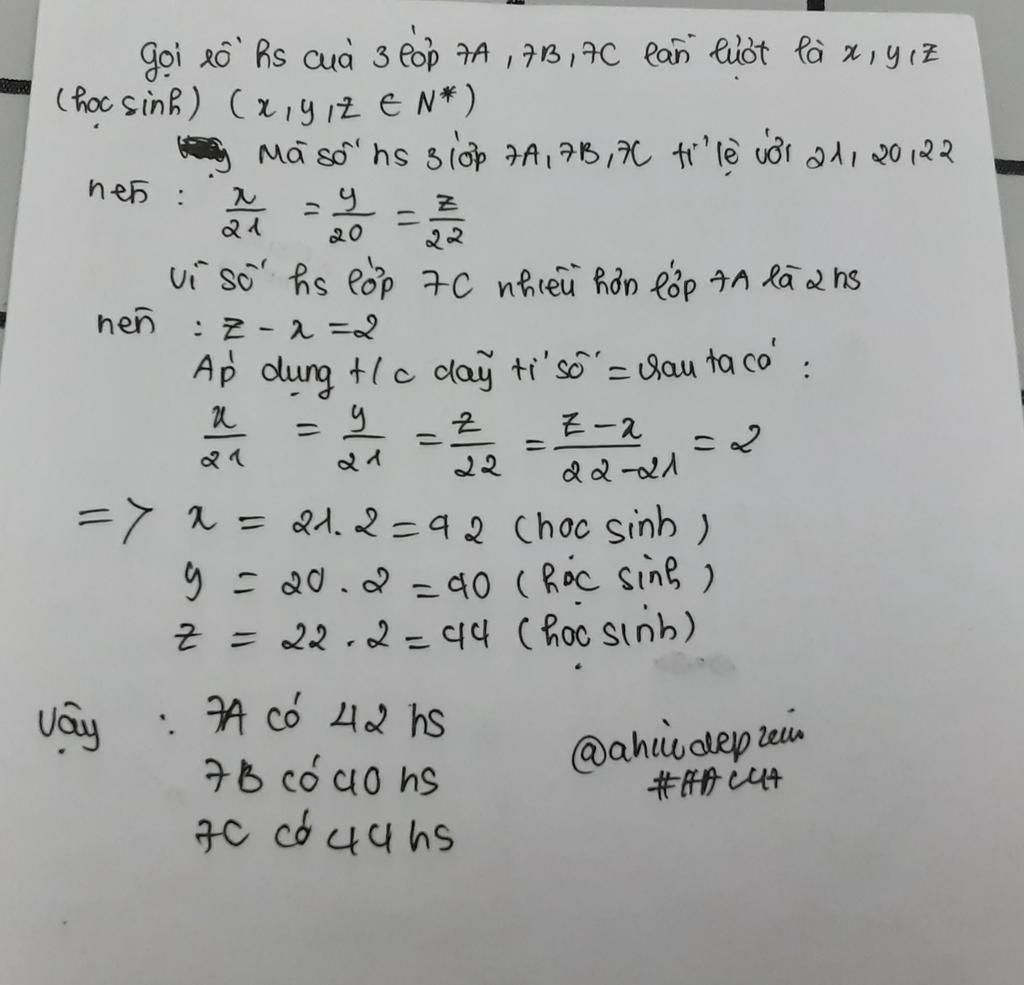 Gọi số hs của 3 lớp 7A, 7B, 7C lần lượt là x, y, z
(học sinh) (x, y, z ∈ N*)
Mà số hs 3 lớp 7A, 7B, 7C tỉ lệ với 21, 20, 22
nên : x/21 = y/20 = z/22
Vì số hs lớp 7C nhiều hơn lớp 7A là 2 hs
nên : z - x = 2
Áp dụng t/c dãy tỉ số = nhau ta có :
x/21 = y/21 = z/22 = z-x/22-21 = 2
=> x = 21.2 = 42 (học sinh)
y = 20.2 = 40 (học sinh)
z = 22.2 = 44 (học sinh)
Vậy : 7A có 42 hs
7B có 40 hs
7C có 44 hs